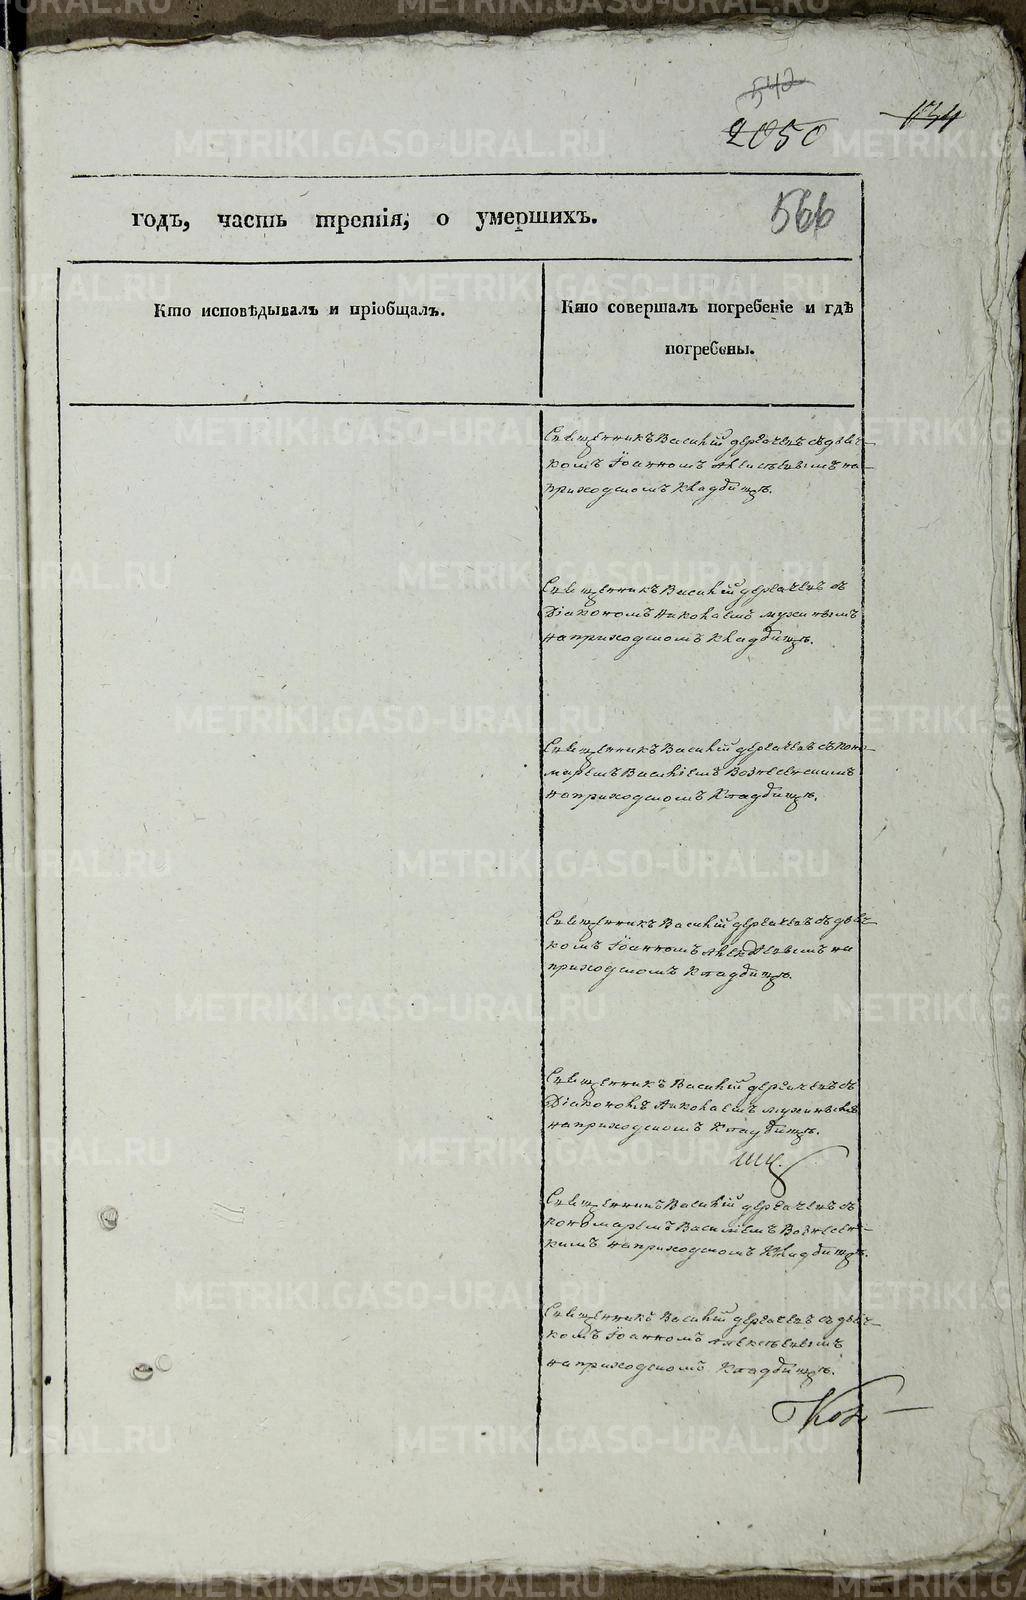 542
2050
134
годъ, часть третія, о умершихъ.
566
Кто исповѣдывалъ и пріобщалъ.
Кто совершалъ погребеніе и гдѣ
погребены.
Священникъ Василій съ дьяч-
комъ Іоанномъ Алексѣевымъ на
приходскомъ кладбищѣ.
Священникъ Василій съ
Діакономъ Николаемъ Мухинымъ
на приходскомъ кладбищѣ.
Священникъ Василій съ поно-
маремъ Василіемъ Вознесенскимъ
на приходскомъ кладбищѣ.
Священникъ Василій съ дьяч-
комъ Іоанномъ Алексѣевымъ на
приходскомъ кладбищѣ.
Священникъ Василій съ
Діакономъ Николаемъ
на приходскомъ кладбищѣ.
Священникъ Василій съ
пономаремъ Василіемъ Вознесенс-
кимъ на приходскомъ кладбищѣ.
Священникъ Василій съ дьяч-
комъ Іоанномъ Алексѣевымъ
на приходскомъ кладбищѣ.
METRIKI.GASO-URAL.RU